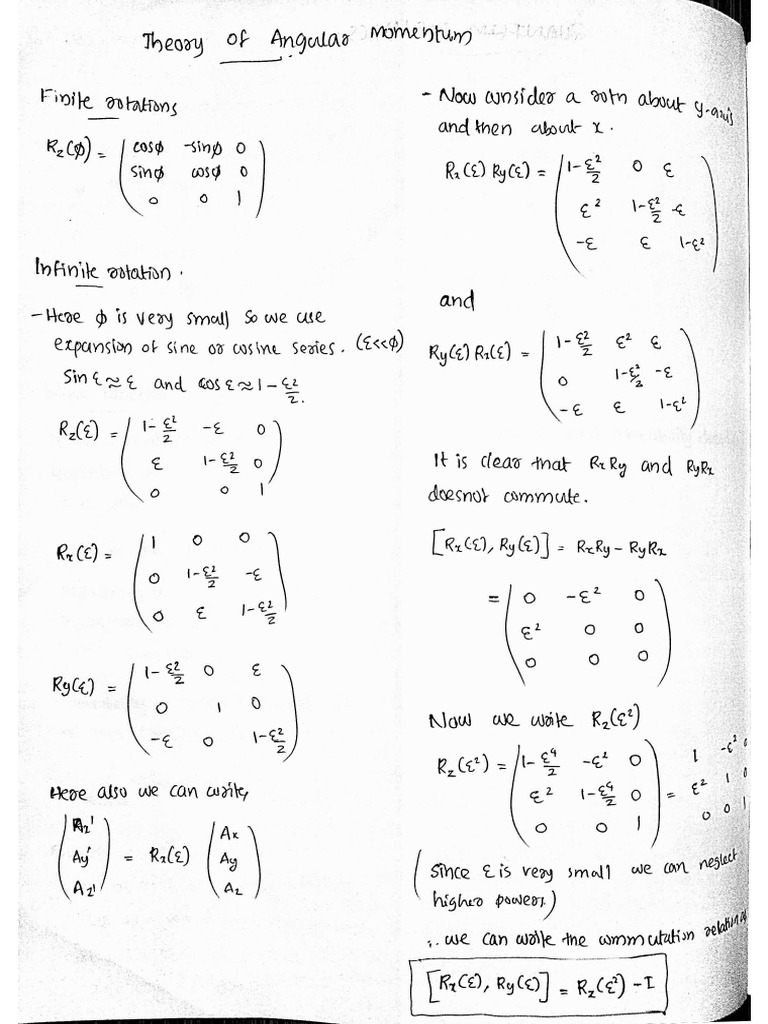 Theory of Angular Momentum
Finite rotations
Rz(φ) = ( cosφ -sinφ 0
sinφ cosφ 0
0 0 1 )
Infinite rotation.
- Here φ is very small so we use
expansion of sine or cosine series. (ε<<φ)
Sin ε ≈ ε and cos ε ≈ 1 - ε²/2.
Rz(ε) = ( 1-ε²/2 -ε 0
ε 1-ε²/2 0
0 0 1 )
Rx(ε) = ( 1 0 0
0 1-ε²/2 -ε
0 ε 1-ε²/2 )
Ry(ε) = ( 1-ε²/2 0 ε
0 1 0
-ε 0 1-ε²/2 )
Here also we can write,
( Ax'
Ay'
Az' ) = Rx(ε) ( Ax
Ay
Az )
- Now consider a rotn about y-axis
and then about x.
Rx(ε) Ry(ε) = ( 1-ε²/2 0 ε
ε² 1-ε²/2 -ε
-ε ε 1-ε² )
and
Ry(ε) Rx(ε) = ( 1-ε²/2 ε² ε
0 1-ε²/2 -ε
-ε ε 1-ε² )
It is clear that RxRy and RyRx
doesnot commute.
[Rx(ε), Ry(ε)] = RxRy - RyRx
= ( 0 -ε² 0
ε² 0 0
0 0 0 )
Now we write Rz(ε²)
Rz(ε²) = ( 1-ε⁴/2 -ε² 0
ε² 1-ε⁴/2 0
0 0 1 ) = 1 -ε² 0
ε² 1 0
0 0 1
(Since ε is very small we can neglect
higher powers.)
∴ we can write the commutation relation as
[Rx(ε), Ry(ε)] = Rz(ε²) - I